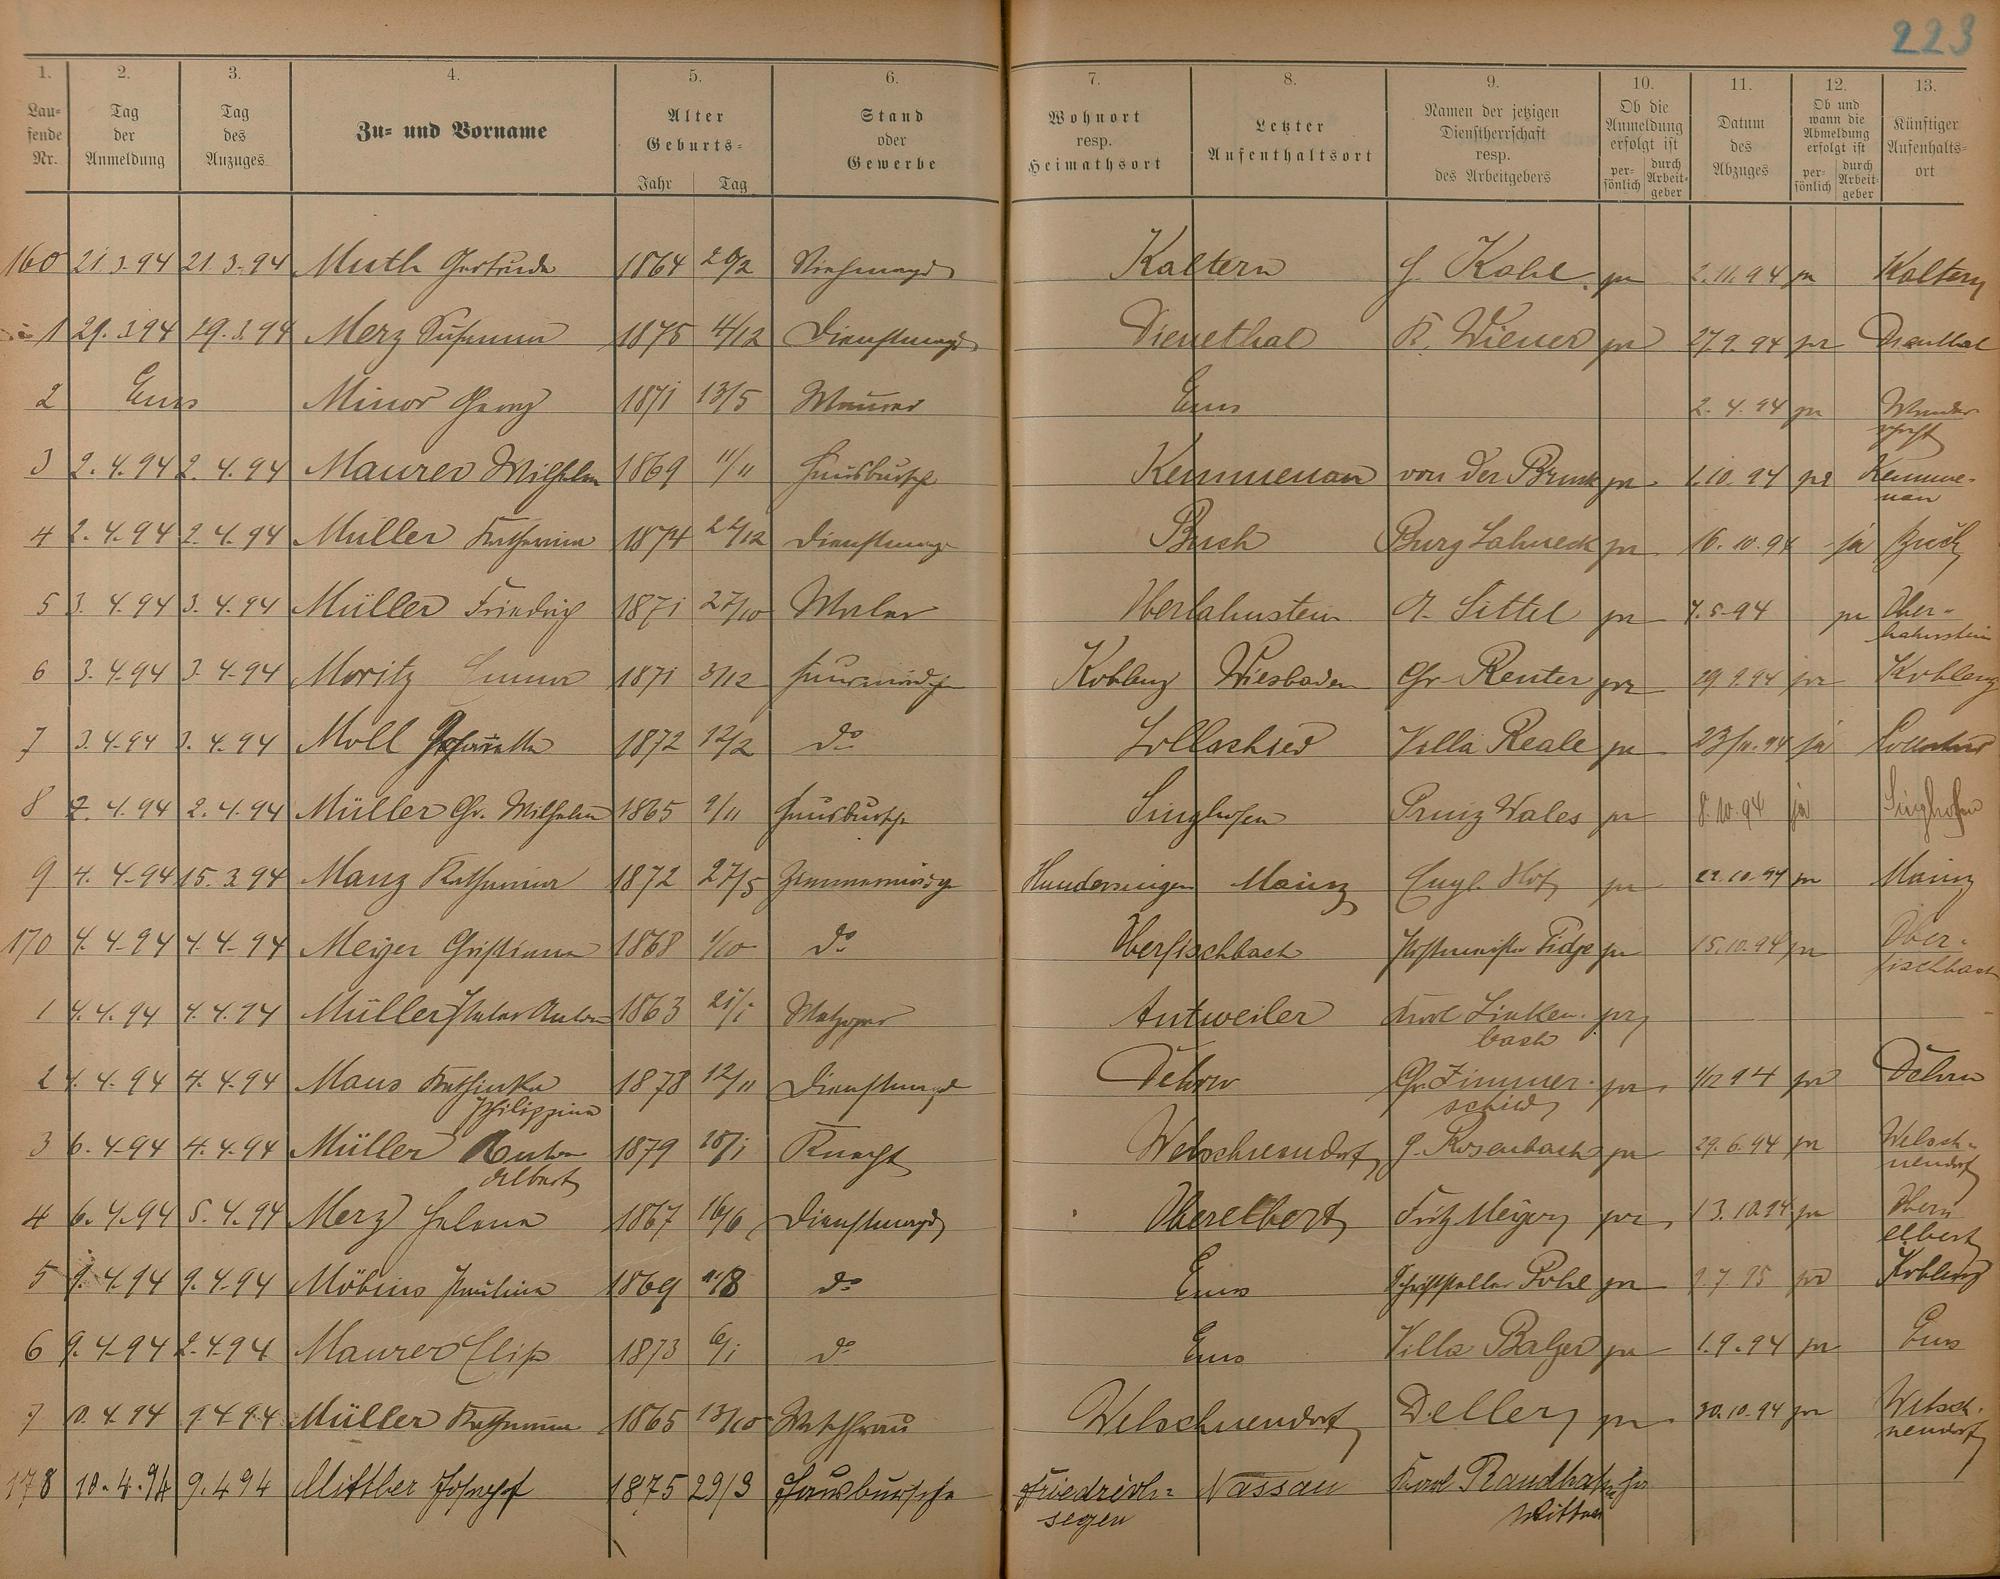 223
1. 2. 3. 4. 5. 6. 7. 8. 9. 10. 11. 12. 13.
Lau-
fende
Nr.
Tag
der
Anmeldung
Tag
des
Anzuges
Zu- und Vorname
Alter
Geburts-
Jahr Tag
Stand
oder
Gewerbe
Wohnort
resp.
Heimathsort
Letzter
Aufenthaltsort
Namen der jetzigen
Dienstherrschaft
resp.
des Arbeitgebers
Ob die
Anmeldung
erfolgt ist
per-
sönlich
durch
Arbeit-
geber
Datum
des
Abzuges
Ob und
wann die
Abmeldung
erfolgt ist
per-
sönlich
durch
Arbeit-
geber
Künftiger
Aufenthalts-
ort
160 21.3.94 21.3.94 Muth Gertrude 1864 20/2 Viehmagd Kaltern J. Kohl 2.11.94 Kaltern
1 29.3.94 29.3.94 Merz Susanna 1875 4/12 Dienstmagd Dienethal K. Wiener 27.9.94 Dienethal
2 Ems Minor Georg 1871 13/5 Maurer Ems 2.4.94 Wander-
schaft
3 2.4.94 2.4.94 Maurer Wilhelm 1869 11/11 Hausbursche Kemmenau von der Bruck 1.10.94 Kemme-
nau
4 2.4.94 2.4.94 Müller Katharina 1874 22/12 Dienstmagd Buch Burg Lahneck 16.10.94 ja Buch
5 3.4.94 3.4.94 Müller Friedrich 1871 27/10 Maler Oberlahnstein A. Sittel 7.5.94 Ober-
lahnstein
6 3.4.94 3.4.94 Moritz Emma 1871 3/12 Hausmädchen Koblenz Wiesbaden Gr. Reuter 29.9.94 Koblenz
7 3.4.94 3.4.94 Moll 1872 12/2 do Lollschied Villa Reale 23/11.94 ja Lollschied
8 2.4.94 2.4.94 Müller Gr. Wilhelm 1865 9/11 Hausbursche Singhofen Prinz Wales 8.10.94 ja Singhofen
9 4.4.94 15.3.94 Manz Katharina 1872 27/5 Zimmermädchen Hundersingen Mainz Engl. Hof 22.10.94 Mainz
170 4.4.94 4.4.94 Meijer Christiana 1868 1/10 do Oberfischbach 15.10.94 Ober-
fischbach
1 4.4.94 4.4.94 Müller Peter Anton 1863 21/1 Metzger Antweiler Karl Linken-
bach
2 4.4.94 4.4.94 Maus Kathinka
Philippina 1878 12/11 Dienstmagd Dehrn Gr. Zimmer-
schied 1/12 94 Dehrn
3 6.4.94 4.4.94 Müller Anton
Albert 1879 18/1 Knecht Welschneudorf J. Rosenbach 29.6.94 Welsch-
neudorf
4 6.4.94 5.4.94 Merz Helena 1867 16/6 Dienstmagd Oberelbert Fritz Meijer 13.10.94 Ober-
elbert
5 9.4.94 9.4.94 Möbius Paulina 1869 do Ems Schriftsteller Pohl 9.7.95 Koblenz
6 9.4.94 2.4.94 Maurer Elise 1873 6/1 do Ems Villa Balzer 1.9.94 Ems
7 10.4.94 9.4.94 Müller Katharina 1865 13/10 Waschfrau Welschneudorf Deller 30.10.94 Welsch-
neudorf
178 10.4.94 9.4.94 Mittler Joseph 1875 29/3 Hausbursche Friedrich-
segen Nassau Karl